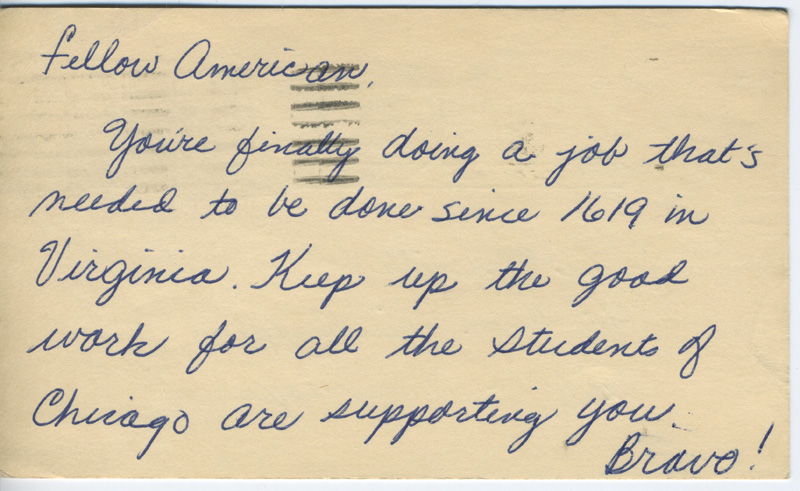 Fellow American,
You're finally doing a job that's
needed to be done since 1619 in
Virginia. Keep up the good
work for all the students of
Chicago are supporting you.
Bravo!